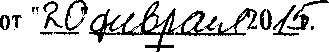 от "20 февраля 2015г.